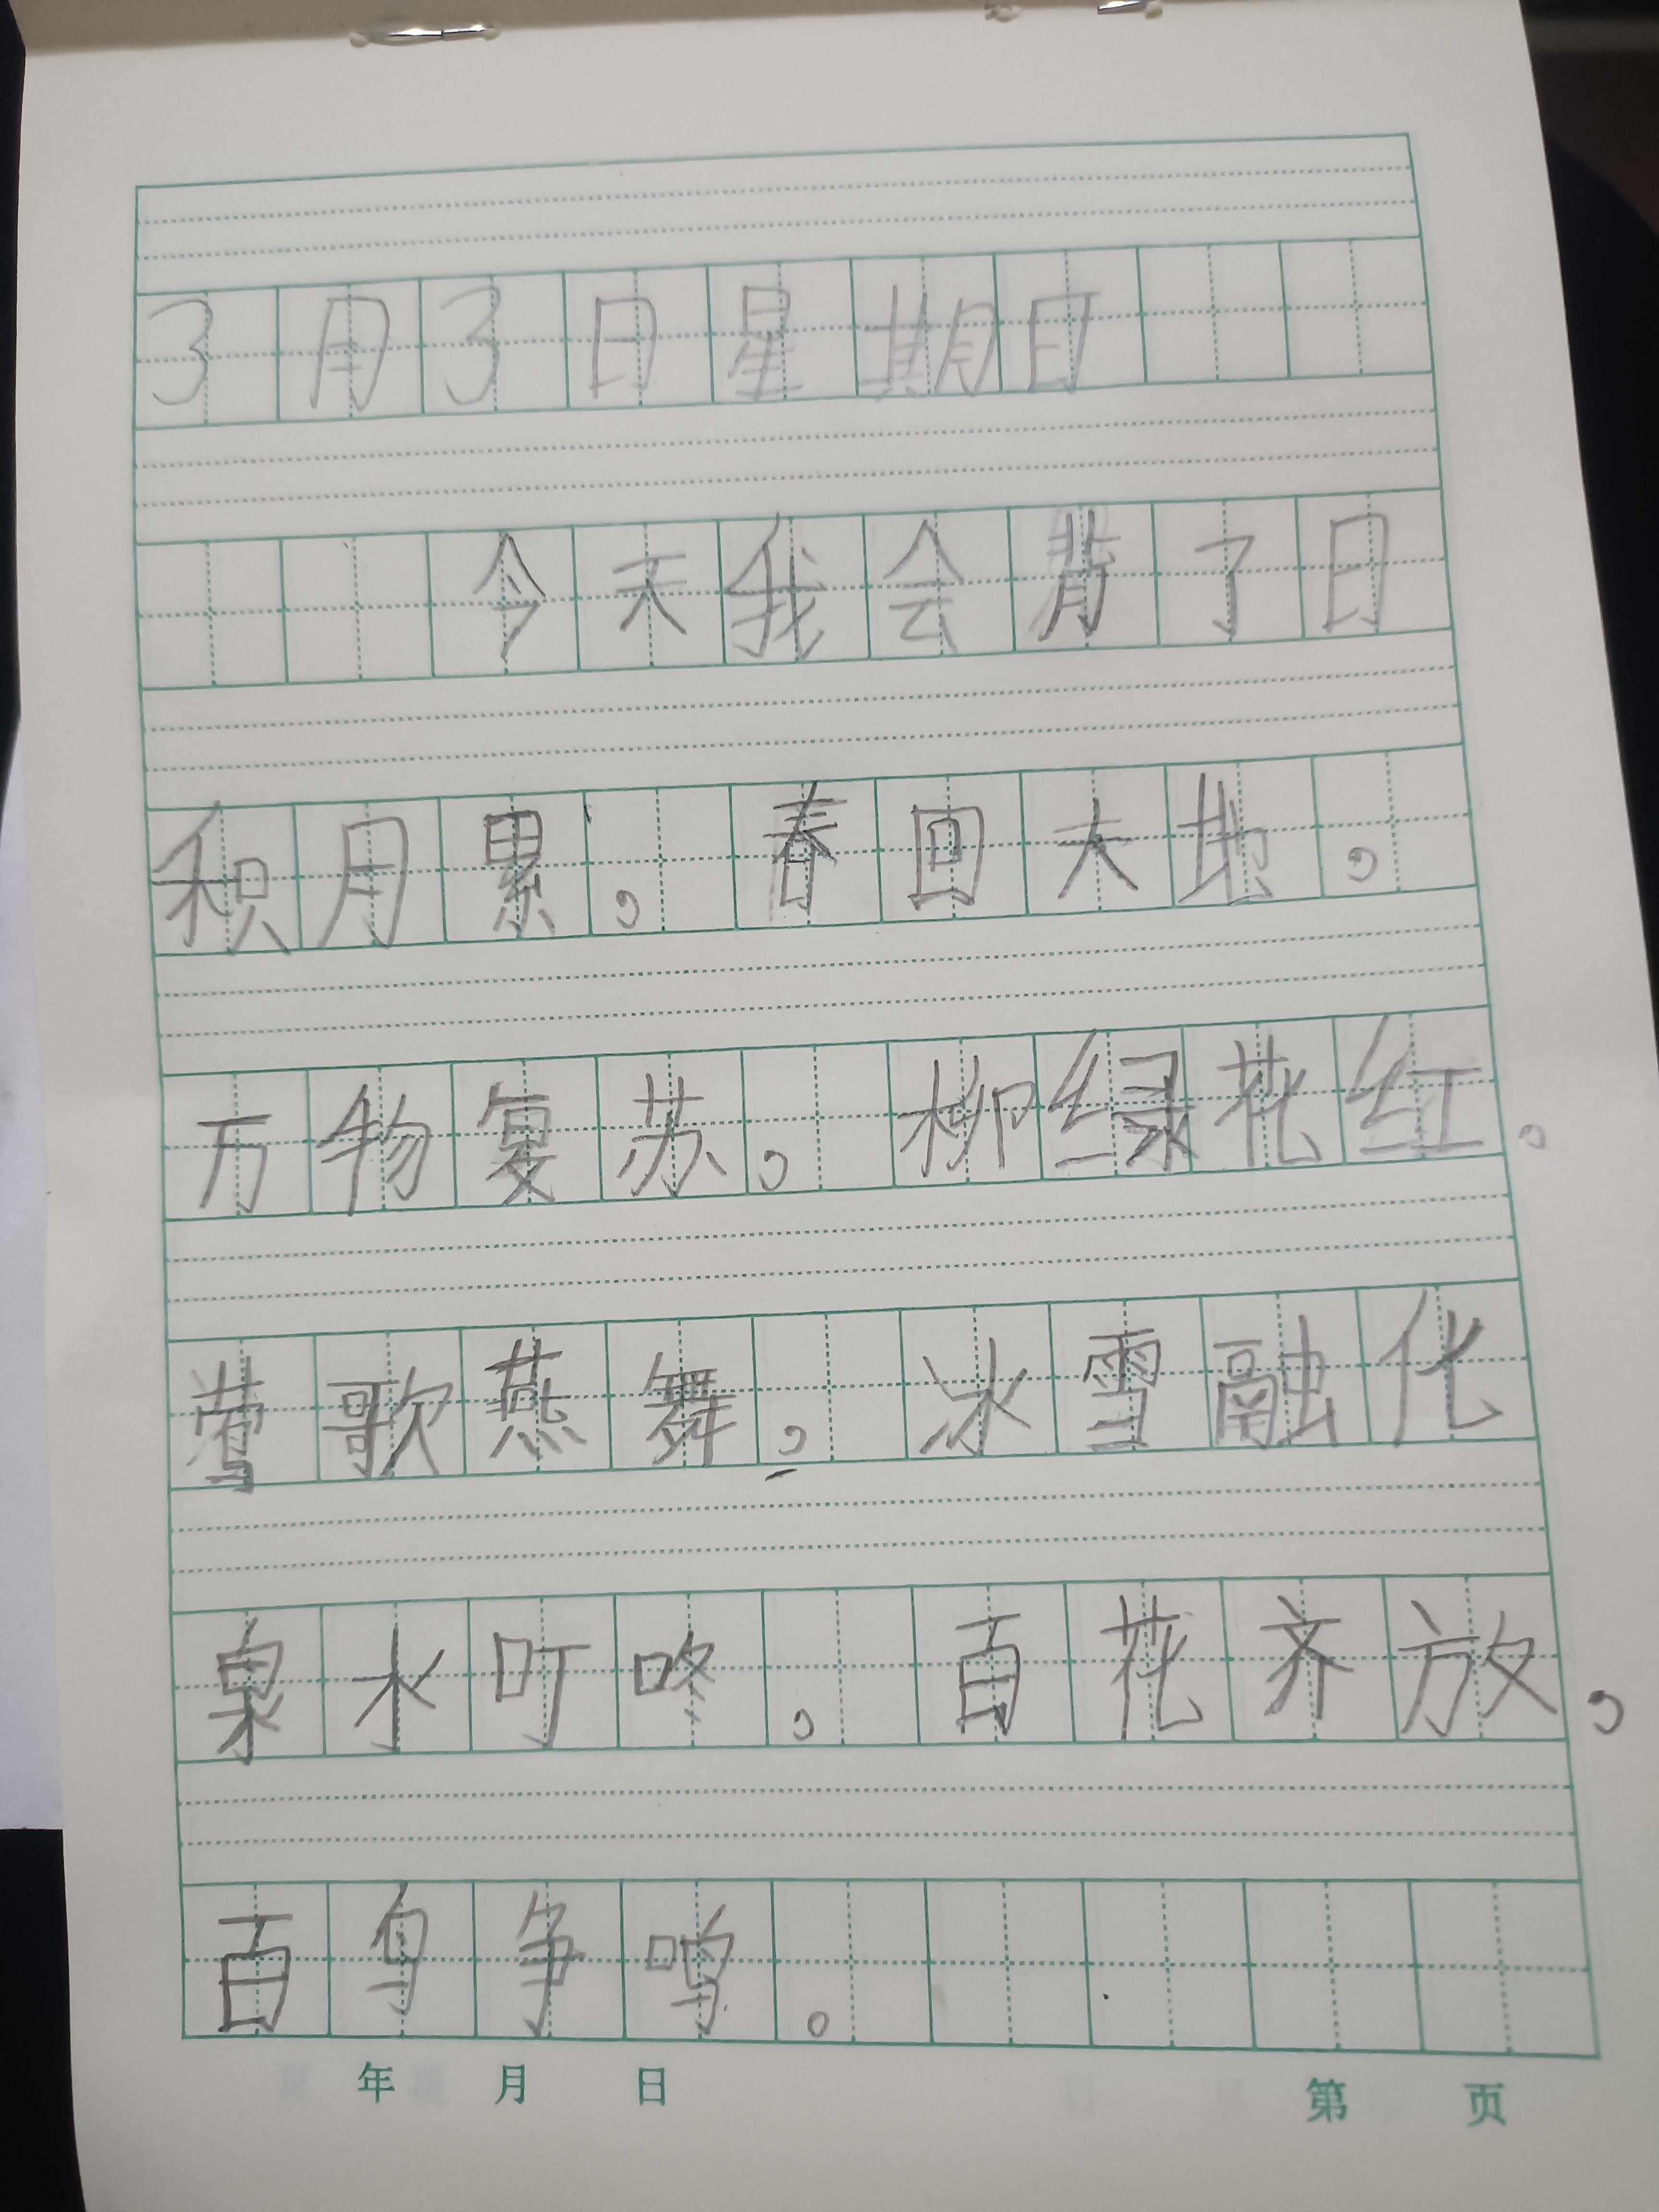 3月3日星期日
今天我会背了日
积月累，春回大地，
万物复苏，柳绿花红。
莺歌燕舞，冰雪融化
泉水叮咚，百花齐放，
百鸟争鸣。
年 月 日 第 页